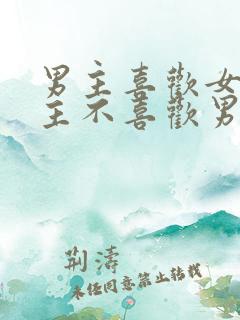 男主喜歡女
主不喜歡男
荆濤
未经同意禁止转载